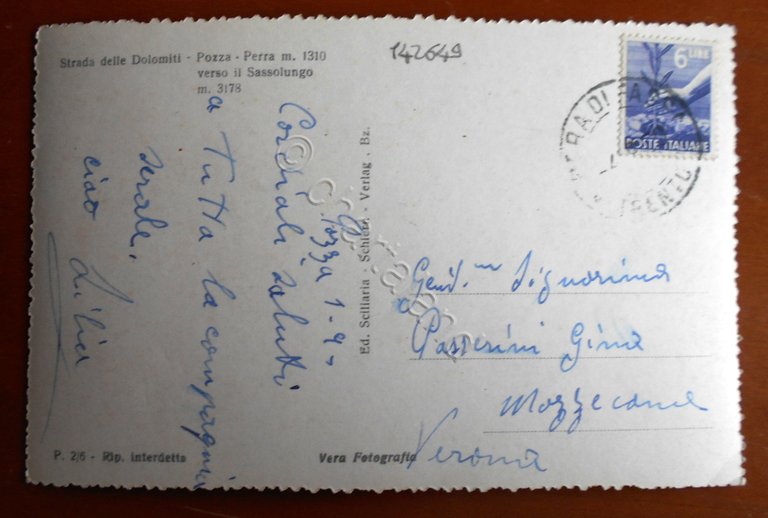 Strada delle Dolomiti - Pozza - Perra m. 1310
verso il Sassolungo
m. 3178
142649
6 LIRE
POSTE ITALIANE
Pozza 1-9-
Cordiali saluti
a Tutta la compagnia
serale.
ciao Lilia
Ed. Sciliaria - Schlern - Verlag, Bz.
Gent.ma Signorina
Passerini Gina
Mozzecane
Verona
P. 2/6 - Rip. interdetta
Vera Fotografia